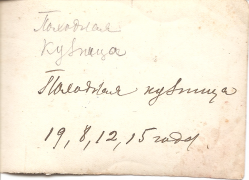 Походная
кузница
Походная кузница
19, 8, 12, 15 годы